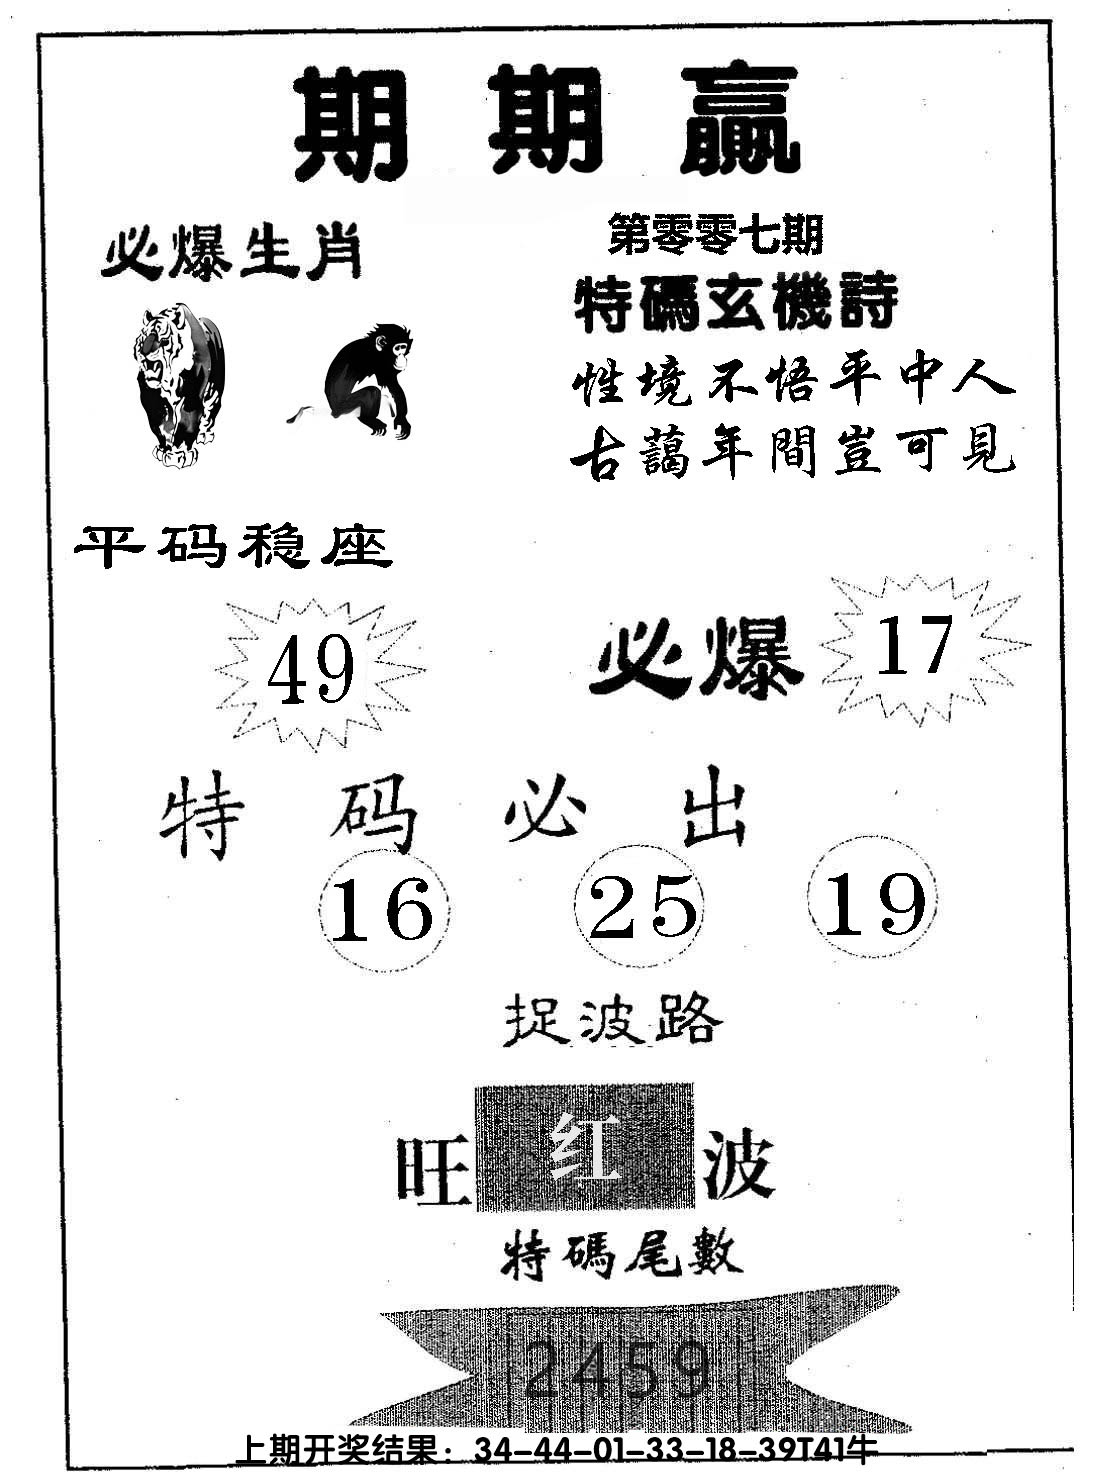 期期赢
必爆生肖
第零零七期
特碼玄機詩
性境不悟平中人
古藹年間豈可見
平码稳座
49
必爆 17
特码必出
16 25 19
捉波路
旺红波
特碼尾數
2459
上期开奖结果：34-44-01-33-18-39T41牛